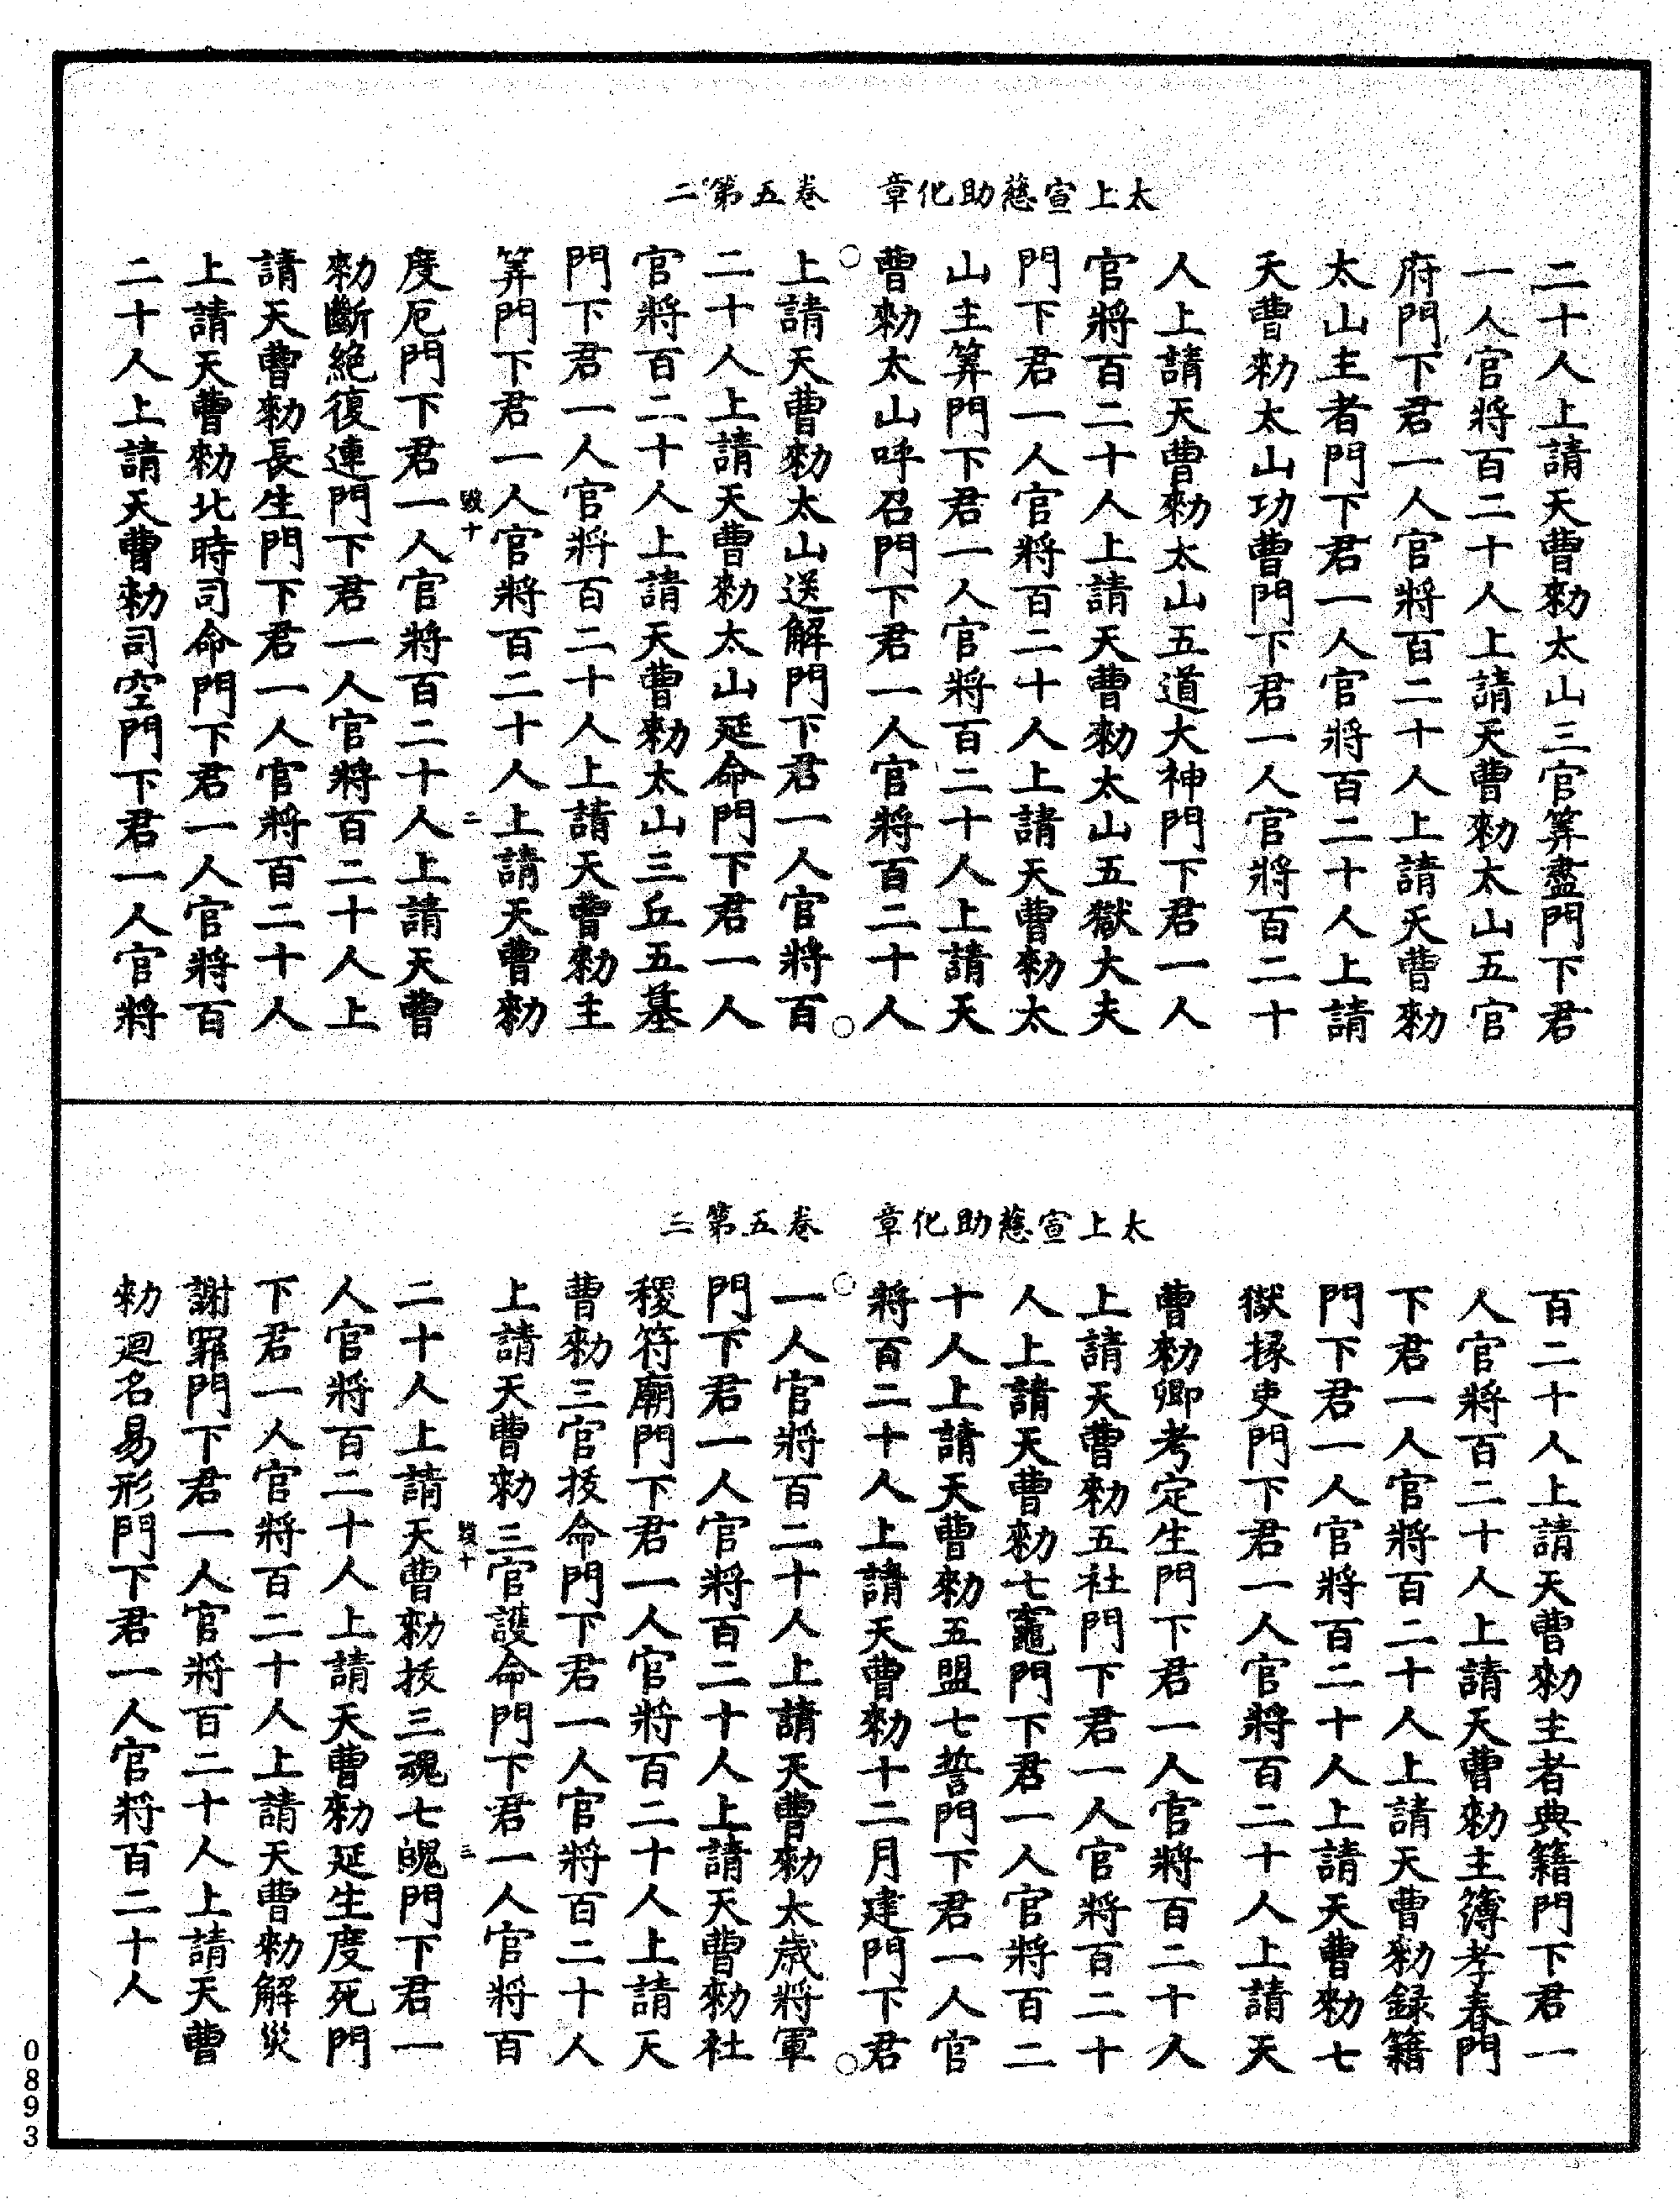 太上宣慈助化章　卷五第二
二十人上請天曹勑太山三官筭盡門下君
一人官將百二十人上請天曹勑太山五官
府門下君一人官將百二十人上請天曹勑
太山主者門下君一人官將百二十人上請
天曹勑太山功曹門下君一人官將百二十
人上請天曹勑太山五道大神門下君一人
官將百二十人上請天曹勑太山五獄大夫
門下君一人官將百二十人上請天曹勑太
山主筭門下君一人官將百二十人上請天
曹勑太山呼召門下君一人官將百二十人
上請天曹勑太山送解門下君一人官將百
二十人上請天曹勑太山延命門下君一人
官將百二十人上請天曹勑太山三丘五墓
門下君一人官將百二十人上請天曹勑主
筭門下君一人官將百二十人上請天曹勑
毁十　二
度厄門下君一人官將百二十人上請天曹
勑斷絕復連門下君一人官將百二十人上
請天曹勑長生門下君一人官將百二十人
上請天曹勑北時司命門下君一人官將百
二十人上請天曹勑司空門下君一人官將
太上宣慈助化章　卷五第三
百二十人上請天曹勑主者典籍門下君一
人官將百二十人上請天曹勑主簿孝春門
下君一人官將百二十人上請天曹勑録籍
門下君一人官將百二十人上請天曹勑七
獄掾吏門下君一人官將百二十人上請天
曹勑卿考定生門下君一人官將百二十人
上請天曹勑五社門下君一人官將百二十
人上請天曹勑七竈門下君一人官將百二
十人上請天曹勑五盟七誓門下君一人官
將百二十人上請天曹勑十二月建門下君
一人官將百二十人上請天曹勑太歲將軍
門下君一人官將百二十人上請天曹勑社
稷符廟門下君一人官將百二十人上請天
曹勑三官拔命門下君一人官將百二十人
上請天曹勑三官護命門下君一人官將百
毁十　三
二十人上請天曹勑拔三魂七魄門下君一
人官將百二十人上請天曹勑延生度死門
下君一人官將百二十人上請天曹勑解災
謝罪門下君一人官將百二十人上請天曹
勑迴名易形門下君一人官將百二十人
0893